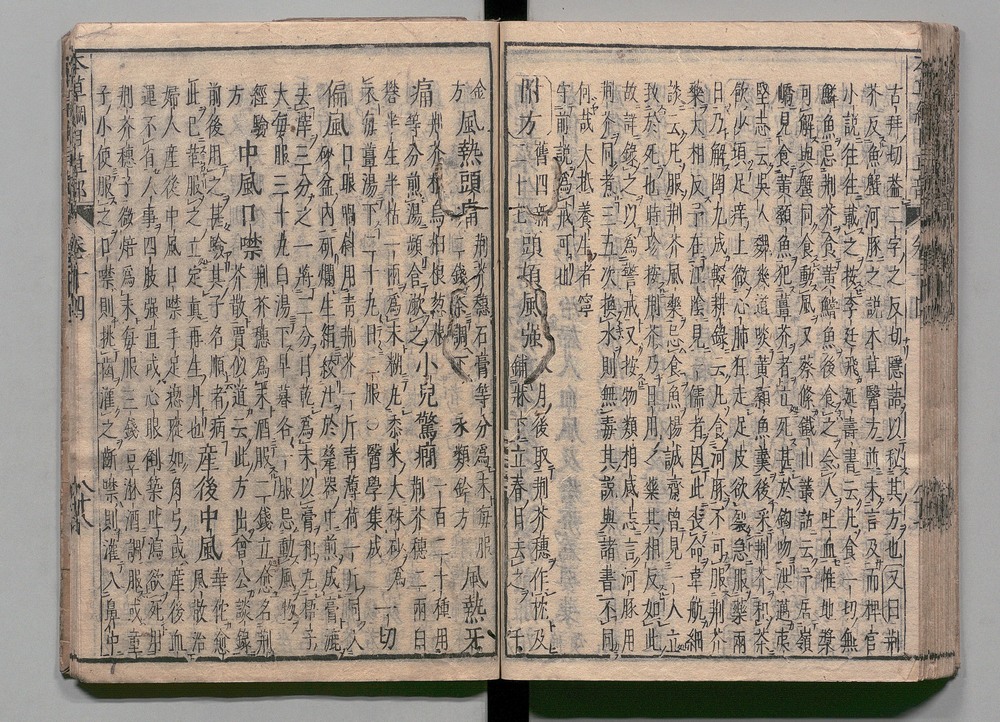 古拜切蓋二字之反切隱語以秘其方也又曰荆
芥反魚蟹河豚之說本草醫方並未言及而稗官
小說徃徃載之按李廷飛延壽書云凡食一切無
鱗魚忌荆芥食黃鱨魚後食之令人吐血惟地漿
可解與蟹同食動風又蔡絛鐵山叢話云予居嶺
嶠見食黃顙魚犯薑芥者立死甚於鉤吻洪邁夷
堅志云吳人魏幾道啖黃顙魚羹後采荆芥和茶
飲少頃足痒上徹心肺狂走足皮欲裂急服藥兩
日乃解陶九成輟耕錄云凡食河豚不可服荆芥
藥大相反予在江陰見一儒者因此喪命葦航細
談云凡服荆芥風藥忌食魚楊誠齋曾見一人立
致於死也時珍按荆芥乃日用之藥其相反如此
故詳錄之以為警戒又按物類相感志言河豚用
荆芥同煮三五次換水則無毒其說與諸書不同
何哉大抵養生者寧
守前說為戒可也
附方 舊四新二十七 頭項風強 八月後取荆芥穗作枕及鋪牀下立春日去之 千
金方 風熱頭痛 荆芥穗石膏等分為末每服二錢茶調下 永類鈐方 風熱牙
痛 荆芥根烏桕根葱根等分煎湯頻含漱之 小兒驚癇 一百二十種用荆芥穗二兩白
礬半生半枯一兩為末糊丸黍米大硃砂為衣每薑湯下二十丸日二服 ○醫學集成 一切
偏風 口眼喎斜用青荆芥一斤青薄荷一斤同入砂盆內研爛生絹絞汁於甆器中煎成膏漉
去滓三分之一將二分日乾為末以膏和丸梧子大每服三十丸白湯下早暮各一服忌動風物
經驗方 中風口噤 荆芥穗為末酒服二錢立愈名荆芥散賈似道云此方出曾公談錄
前後用之甚驗其子名順者病此已革服之立定真再生丹也 產後中風 華佗愈風散治
婦人產後中風口噤手足瘛瘲如角弓或產後血
運不省人事四肢強直或心眼倒築吐瀉欲死用
荆芥穗子微焙為末每服三錢豆淋酒調服或童
子小便服之口噤則挑齒灌之齗噤則灌入鼻中